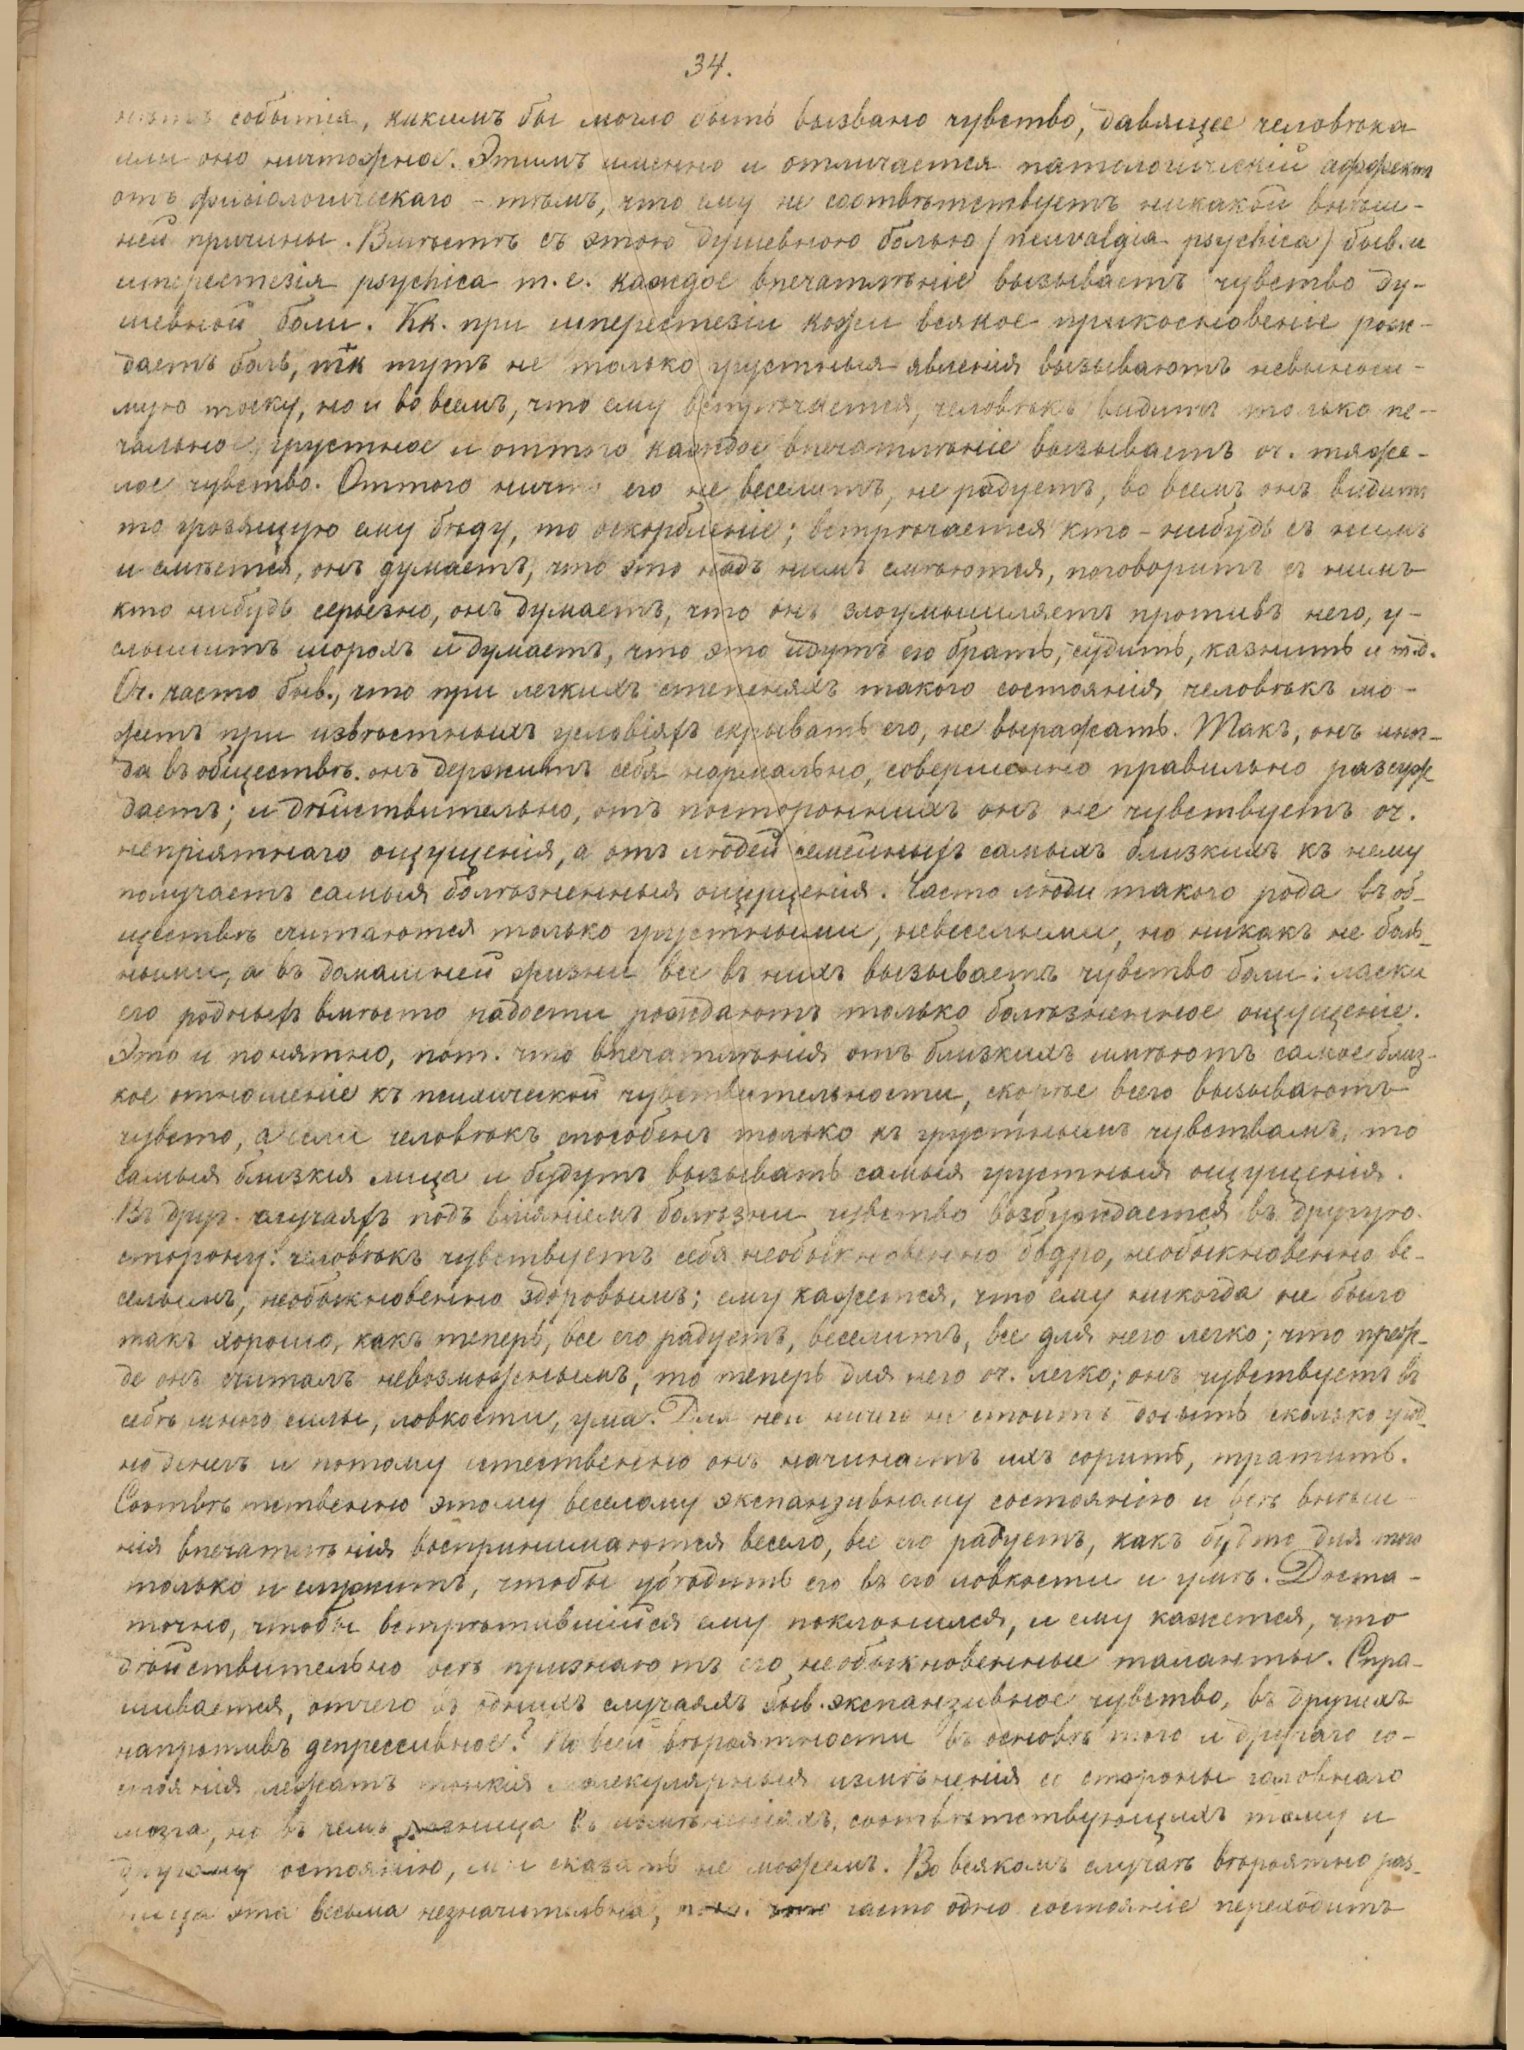 34.
нѣтъ событія, какимъ бы могло быть вызвано чувство, давящее человѣка
или оно ничтожно. Этимъ именно и отличается патологическій аффектъ
отъ физіологическаго - тѣмъ, что ему не соотвѣтствуетъ никакой внѣш-
ней причины. Вмѣстѣ съ этою душевною болью (neuralgia psychica) быв. и
иперестезія psychica т. е. каждое впечатлѣніе вызываетъ чувство ду-
шевной боли. Кк. при иперестезіи кожи всякое прикосновеніе рож-
даетъ боль, тк тутъ не только грустныя явленія вызываютъ невыноси-
мую тоску, но и во всемъ, что ему встрѣчается, человѣкъ видитъ только пе-
чальное, грустное и оттого каждое впечатлѣніе вызываетъ оч. тяже-
лое чувство. Оттого ничто его не веселитъ, не радуетъ, во всемъ онъ видитъ
то грозящую ему бѣду, то оскорбленіе; встрѣчается кто-нибудь съ нимъ
и смѣется, онъ думаетъ, что это надъ нимъ смѣются, поговоритъ съ нимъ
кто нибудь серьезно, онъ думаетъ, что онъ злоумышляетъ противъ него, у-
слышитъ шорохъ и думаетъ, что это идутъ его брать, судить, казнить и т.д.
Оч. часто быв., что при легкихъ степеняхъ такого состоянія человѣкъ мо-
жетъ при извѣстныхъ условіяхъ скрывать его, не выражать. Такъ, онъ иног-
да въ обществѣ онъ держитъ себя нормально, совершенно правильно разсуж
даетъ; и дѣйствительно, отъ постороннихъ онъ не чувствуетъ оч.
непріятнаго ощущенія, а отъ людей семейныхъ самыхъ близкихъ къ нему
получаетъ самыя болѣзненныя ощущенія. Часто люди такого рода въ об-
ществѣ считаются только грустными, невеселыми, но никакъ не боль-
ными, а въ домашней жизни все въ нихъ вызываетъ чувство боли: ласки
его родныхъ вмѣсто радости рождаютъ только болѣзненное ощущеніе.
Это и понятно, пот. что впечатлѣнія отъ близкихъ имѣютъ самое близ-
кое отношеніе къ психической чувствительности, скорѣе всего вызываютъ
чувсто, а если человѣкъ способенъ только къ грустнымъ чувствамъ, то
самыя близкія лица и будутъ вызывать самыя грустныя ощущенія.
Въ друг. случаяхъ подъ вліяніемъ болѣзни чувство возбуждается въ другую
сторону: человѣкъ чувствуетъ себя необыкновенно бодро, необыкновенно ве-
селымъ, необыкновенно здоровымъ; ему кажется, что ему никогда не было
такъ хорошо, какъ теперь, все его радуетъ, веселитъ, все для него легко; что преж-
де онъ считалъ невозможнымъ, то теперь для него оч. легко; онъ чувствуетъ въ
себѣ много силы, ловкости, ума. Для него ничего не стоитъ добыть сколько угод-
но денегъ и потому естественно онъ начинаетъ ихъ сорить, тратить.
Соотвѣтственно этому веселому экспанзивному состоянію и всѣ внѣш-
нія впечатлѣнія воспринимаются весело, все его радуетъ, какъ будто для того
только и служитъ, чтобы убѣдить его въ его ловкости и умѣ. Доста-
точно, чтобы встрѣтившійся ему поклонился, и ему кажется, что
дѣйствительно всѣ признаютъ его необыкновенные таланты. Спра-
шивается, отчего въ однихъ случаяхъ быв. экспанзивное чувство, въ другихъ
напротивъ депрессивное? По всей вѣроятности въ основѣ того и другаго со-
стоянія лежатъ тонкія молекулярныя измѣненія со стороны головнаго
мозга, но въ чемъ разница въ измѣненіяхъ, соотвѣтствующихъ тому и
другому состоянію, мы сказать не можемъ. Во всякомъ случаѣ вѣроятно раз-
ница эта весьма незначительна, пот. что часто одно состояніе переходитъ